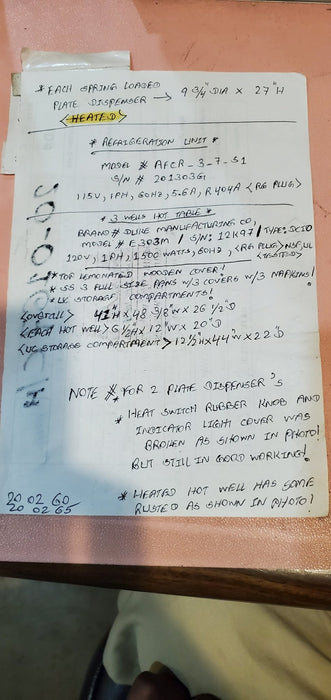 * EACH SPRING LOADED
PLATE DISPENSER → 9 3/4" DIA x 27"H
<HEATED>
* REFRIGERATION UNIT *
MODEL # AFCR-3-7-S1
S/N # 2013036
115V, 1PH, 60HZ, 5.6A, R404A <RG PLUG>
* 3 WELLS HOT TABLE *
BRAND # DUKE MANUFACTURING CO,
MODEL # E303M / S/N: 12K97 / TYPE:
120V, 1PH, 1500 WATTS, 60HZ, <RG PLUG> NSF, UL
* TOP LEMONATED WOODEN COVER!
* SS 3 FULL SIZE PANS W/3 COVERS W/3
* STORAGE COMPARTMENTS!
<OVERALL> 41"H x 48 3/8"W x 26 1/2"D
<EACH HOT WELL> 12"W x 20"D
STORAGE COMPARTMENT> 12 1/2"H x 44"W x 22"D
NOTE * FOR 2 PLATE DISPENSER'S
* HEAT SWITCH RUBBER KNOB AND
INDICATOR LIGHT COVER WAS
BROKEN AS SHOWN IN PHOTO!
BUT STILL IN GOOD WORKING!
20 02 60
20 02 65
* HEATED HOT WELL HAS SOME
RUSTED AS SHOWN IN PHOTO!